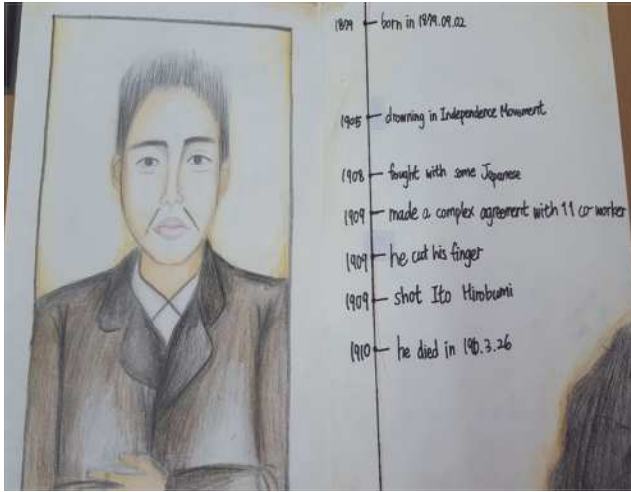 1879 born in 1879.09.02
1905 drowning in Independence Movement
1908 fought with some Japanese
1909 made a complex agreement with 11 co worker
1909 he cut his finger
1909 shot Ito Hirobumi
1910 he died in 1910.3.26